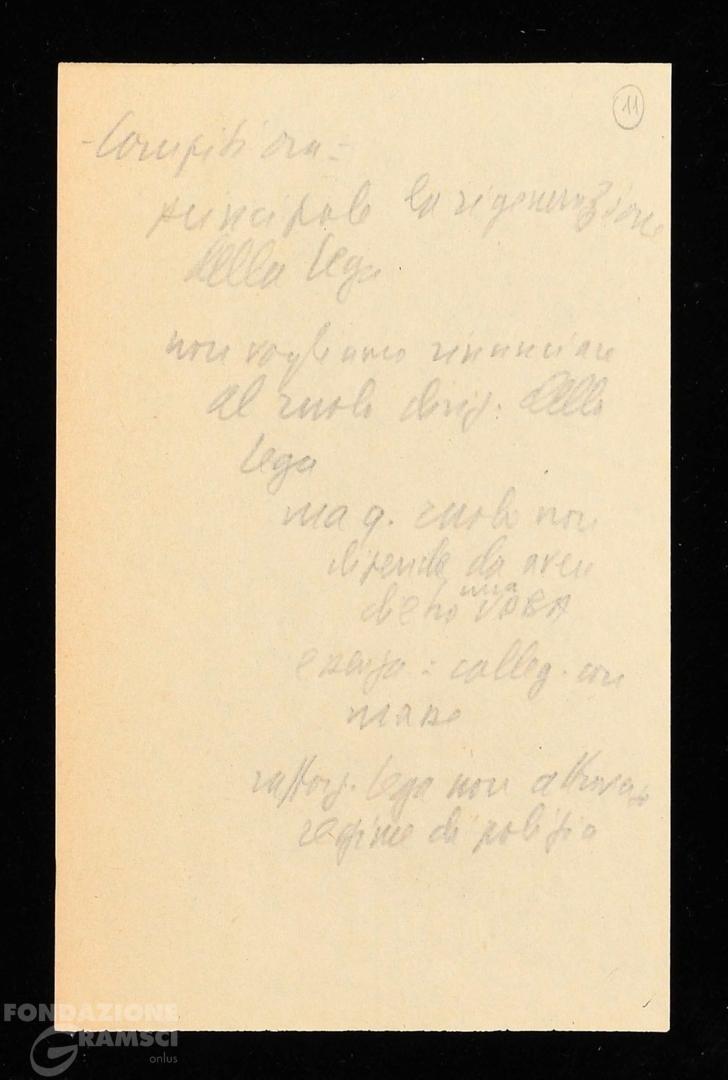 11
- Compiti ora =
principale la rigenerazione
della Lega
non vogliamo rinunciare
al ruolo dirig. della
Lega
ma q. ruolo non
dipende da aver
dietro una UDBA
= colleg. con
masse
rafforz. Lega non attraverso
regime di polizia
FONDAZIONE
GRAMSCI
onlus